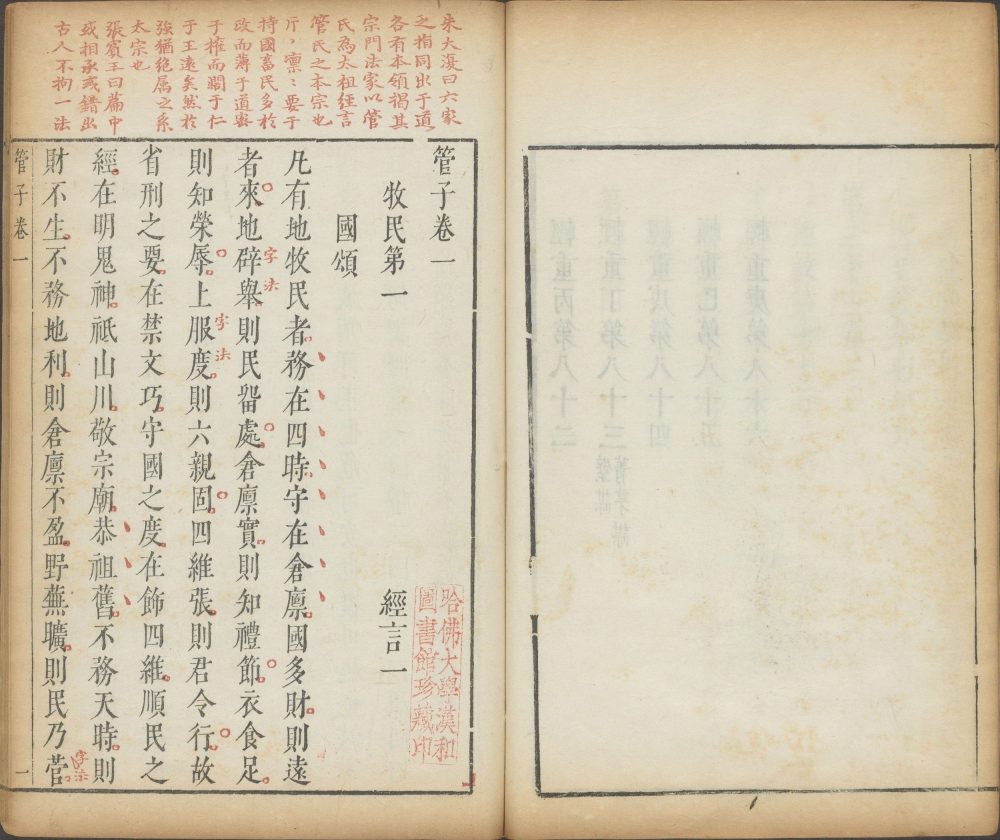 朱大復曰六家
之指同出于道
各有本領揭其
宗門法家以管
氏為太祖經言
管氏之本宗也
斤〻凛〻要于
持國畜民多於
政而薄于道密
于權而闊于仁
于王遠矣然於
強猶絶属之系
太宗也
張賓王曰篇中
或相承或錯出
古人不拘一法
管子卷一
牧民第一 經言一
國頌
凡有地牧民者務在四時守在倉廪國多財則遠
者來地辟舉則民畱處倉廪實則知禮節衣食足
則知榮辱上服度則六親固四維張則君令行故
省刑之要在禁文巧守國之度在飾四維順民之
經在明鬼神祗山川敬宗廟恭祖舊不務天時則
財不生不務地利則倉廪不盈野蕪曠則民乃菅
字法
字法
字法
管子卷一
一
哈佛大學漢和
圖書館珍藏印